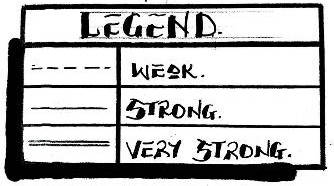 LEGEND.
WEAK.
STRONG.
VERY STRONG.